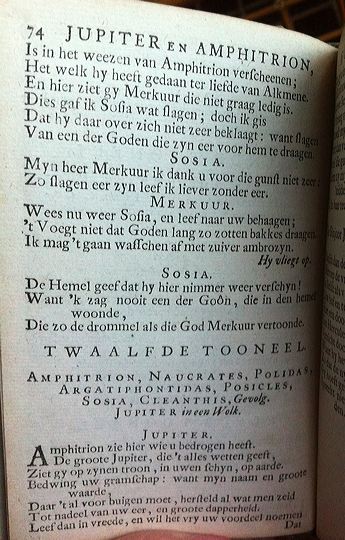 74 JUPITER EN AMPHITRION,
Is in het weezen van Amphitrion verscheenen;
Het welk hy heeft gedaan ter liefde van Alkmene.
En hier ziet gy Merkuur die niet graag ledig is.
Dies gaf ik Sosia wat slagen; doch ik gis
Dat hy daar over zich niet zeer beklaagt: want slagen
Van een der Goden die zyn eer voor hem te draagen.
SOSIA.
Myn heer Merkuur ik dank u voor die gunst niet zeer:
Zo slagen eer zyn leef ik liever zonder eer.
MERKUUR.
Wees nu weer Sosia, en leef naar uw behaagen;
't Voegt niet dat Goden lang zo zotten bakkes draagen.
Ik mag 't gaan wasschen af met zuiver ambrozyn.
Hy vliegt op.
SOSIA.
De Hemel geef dat hy hier nimmer weer verschyn!
Want 'k zag nooit een der Goôn, die in den hemel
woonde,
Die zo de drommel als die God Merkuur vertoonde.
TWAALFDE TOONEEL.
AMPHITRION, NAUCRATES, POLIDAS,
ARGATIPHONTIDAS, POSICLES,
SOSIA, CLEANTHIS, Gevolg.
JUPITER in een Wolk.
JUPITER.
Amphitrion zie hier wie u bedrogen heeft.
De groote Jupiter, die 't alles wetten geeft,
Ziet gy op zynen troon, in uwen schyn, op aarde.
Bedwing uw gramschap: want myn naam en groote
waarde,
Daar 't al voor buigen moet, hersteld al wat men zeid
Tot nadeel van uw eer, en groote dapperheid.
Leef dan in vreede, en wil het vry uw voordeel noemen
Dat